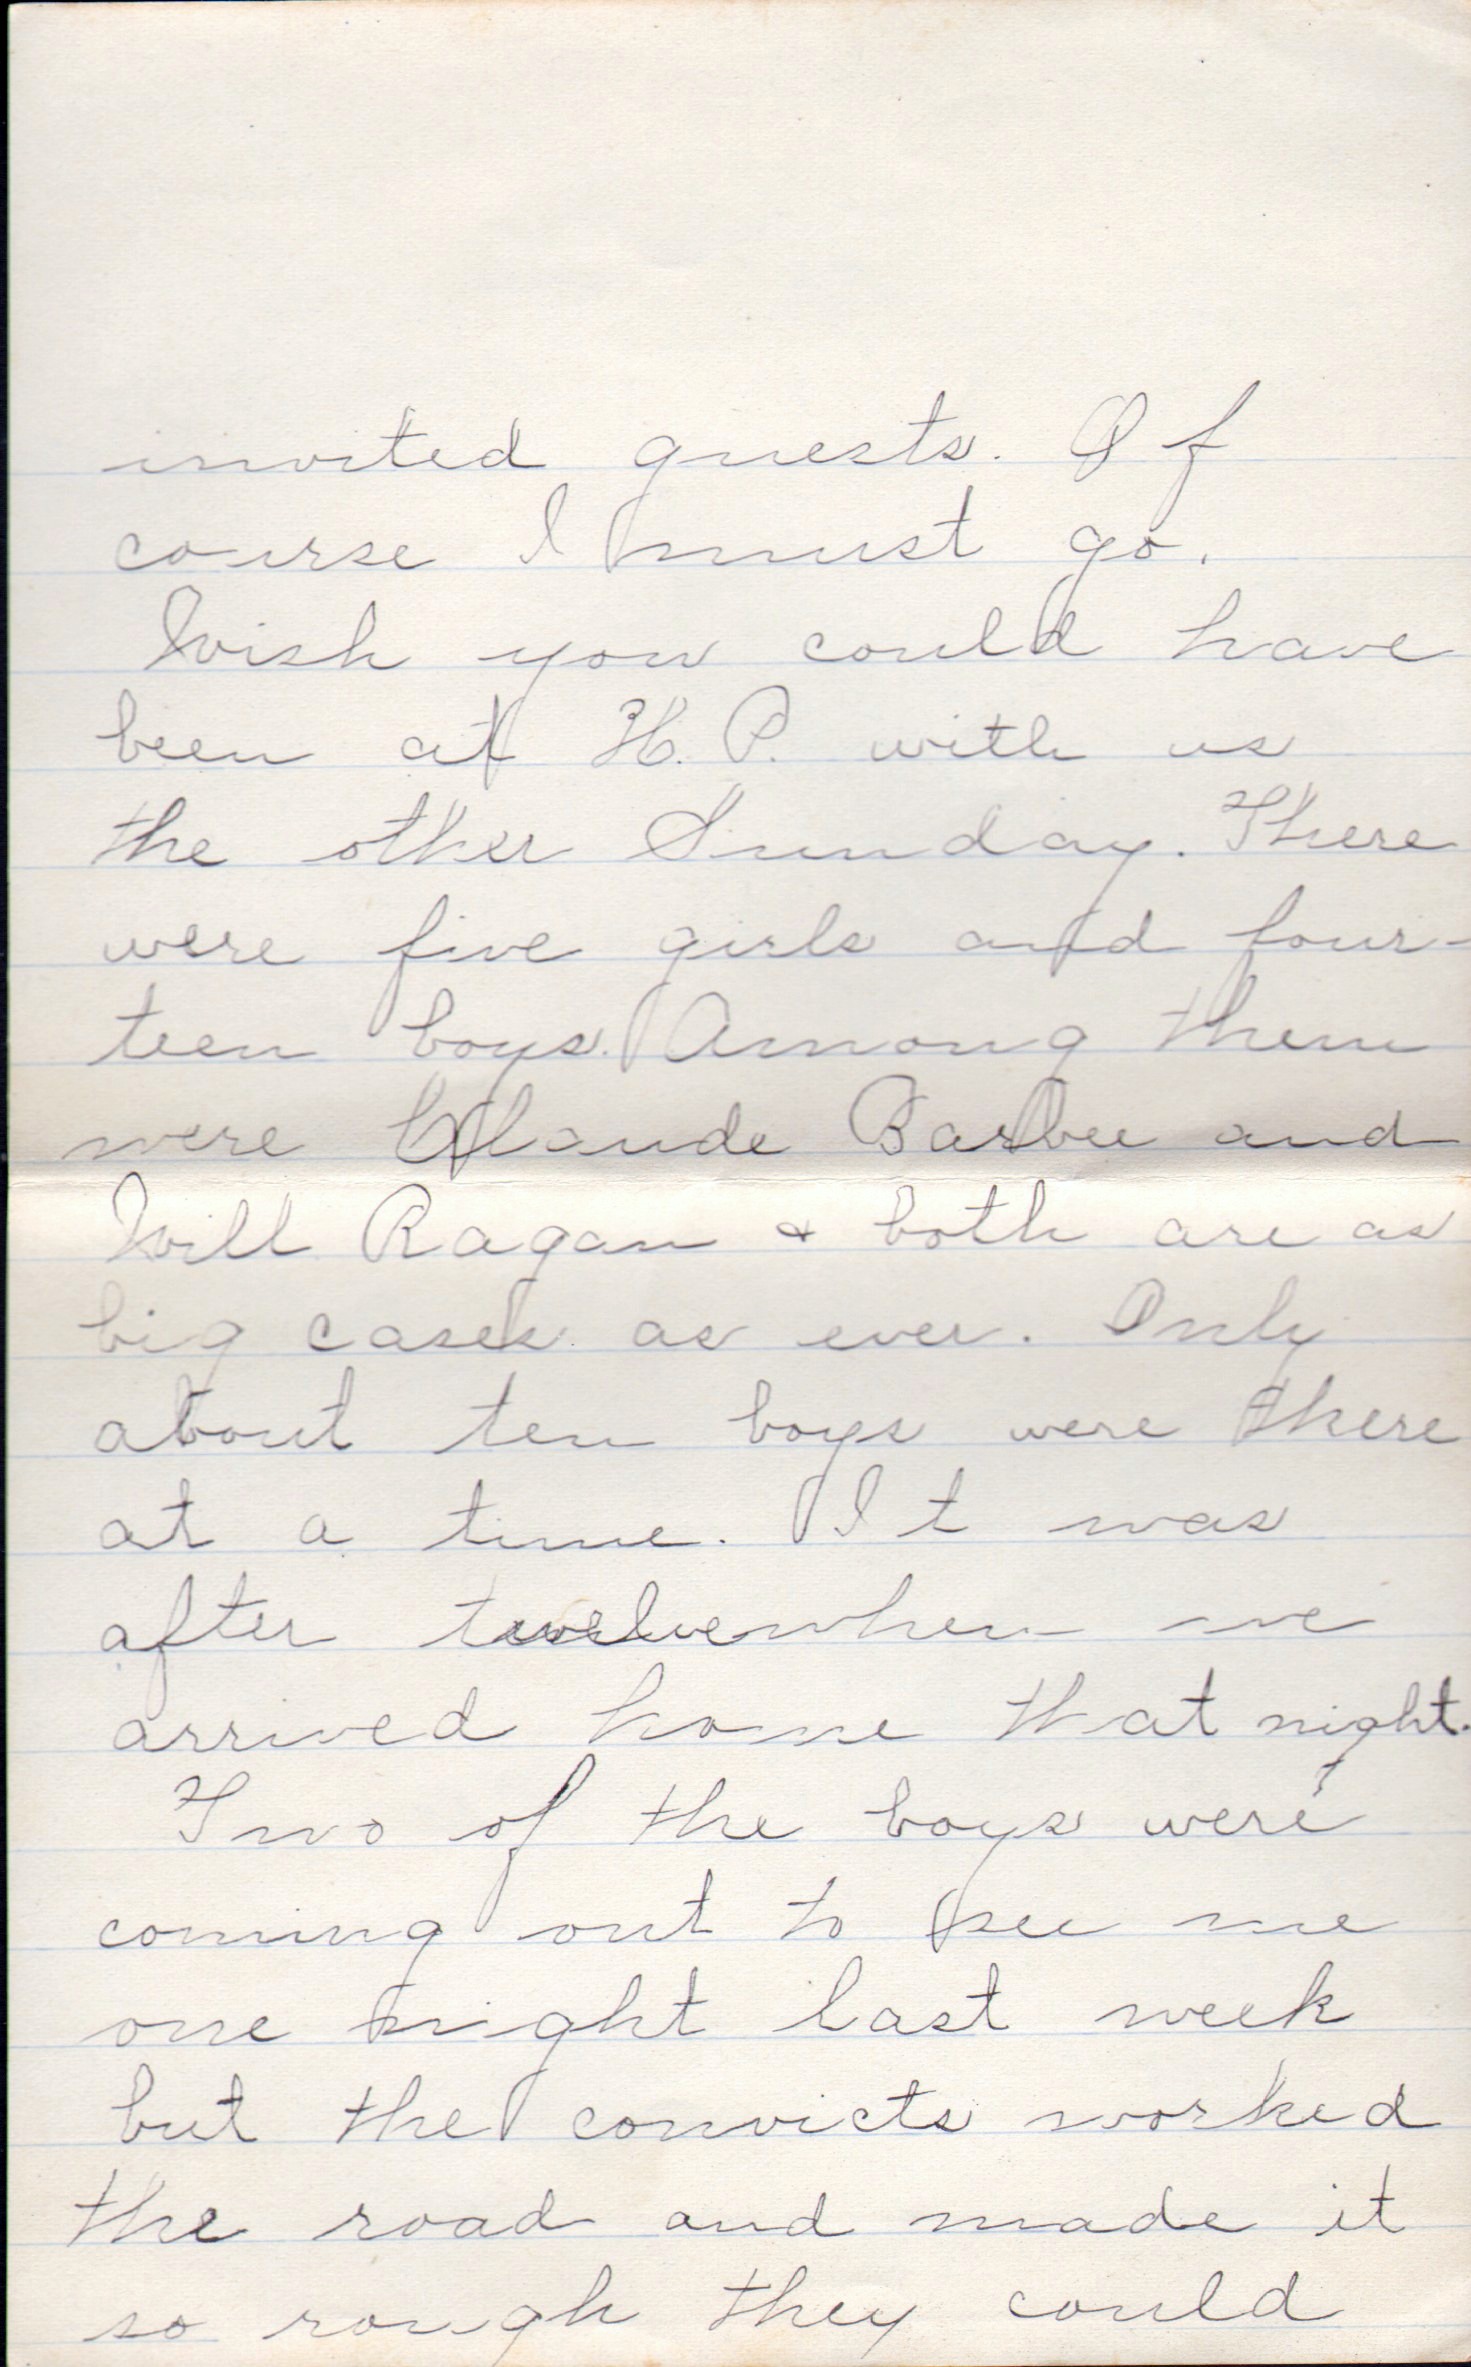 invited guests. Of
course I must go.
Wish you could have
been at H. P. with us
the other Sunday. There
were five girls and four-
teen boys. Among them
were Claude Barbee and
Will Ragan & both are as
big cases as ever. Only
about ten boys were there
at a time. It was
after twelve when we
arrived home that night.
Two of the boys were
coming out to see me
one night last week
but the convicts worked
the road and made it
so rough they could